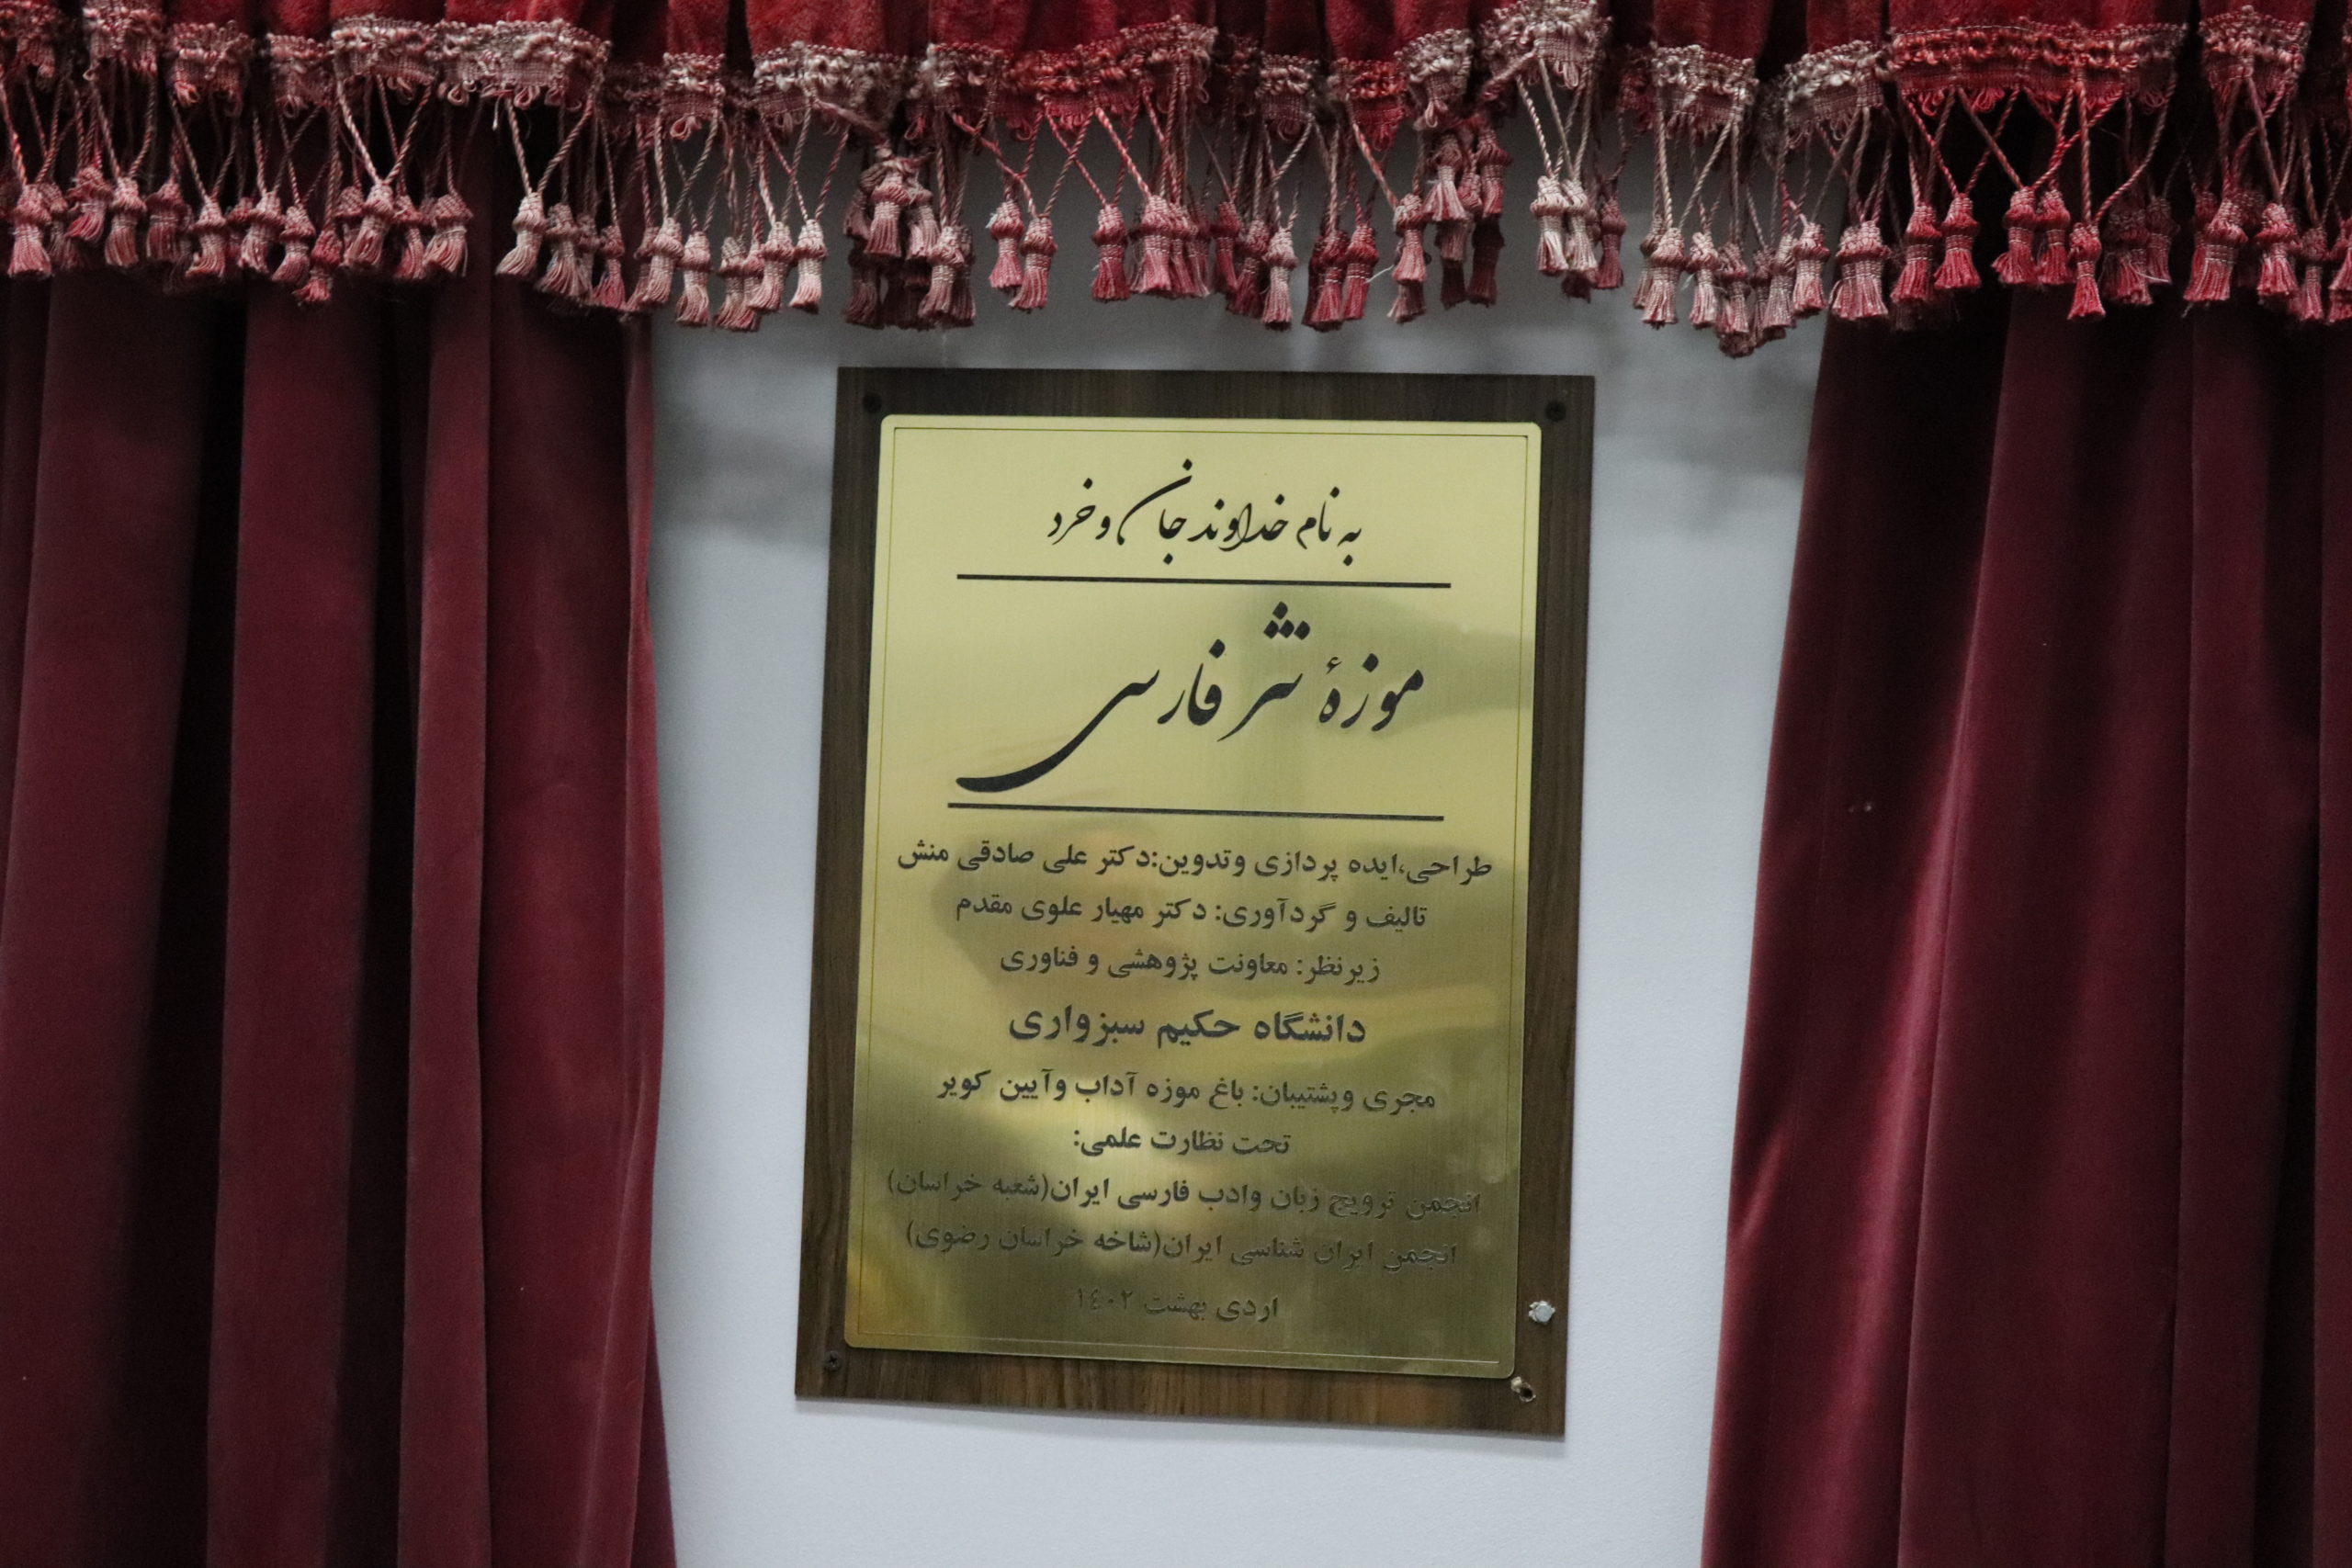 به نام خداوند جان و خرد
موزهٔ نثر فارسی
طراحی،ایده پردازی وتدوین:دکتر علی صادقی منش
تالیف و گردآوری: دکتر مهیار علوی مقدم
زیرنظر: معاونت پژوهشی و فناوری
دانشگاه حکیم سبزواری
مجری وپشتیبان: باغ موزه آداب وآیین کویر
تحت نظارت علمی:
انجمن ترویج زبان وادب فارسی ایران(شعبه خراسان)
انجمن ایران شناسی ایران(شاخه خراسان رضوی)
اردی بهشت ۱٤۰۲